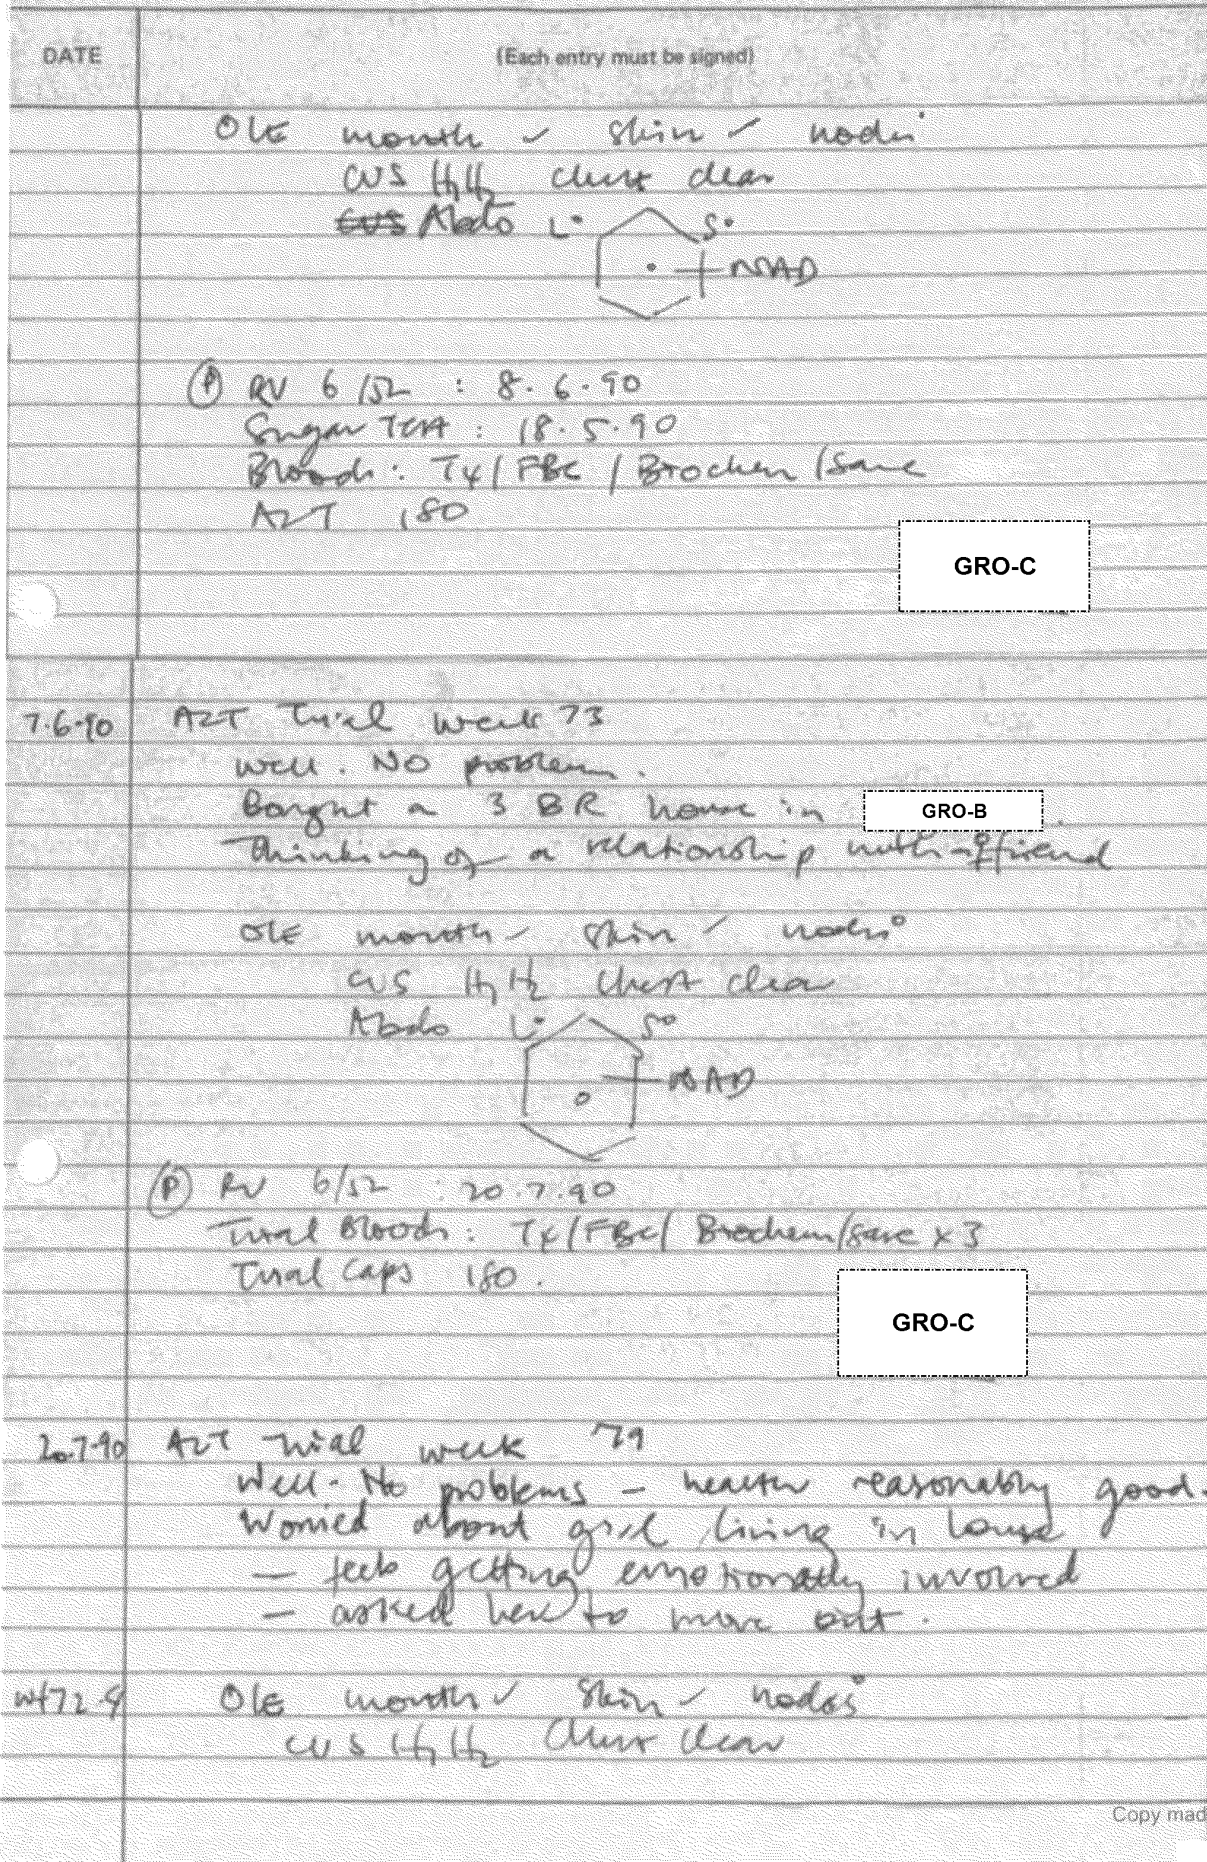 DATE (Each entry must be signed)
O/E mouth ✓ skin ✓ nodes°
CVS H1H2 chest clear
CVS Abdo L° S°
NAD
(P) RV 6/52 : 8.6.90
TCA : 18.5.90
Bloods : T4 / FBC / Biochem / Save
AZT 180
GRO-C
7.6.90 AZT Trial week 73
Well. No problems.
Bought a 3 BR house in GRO-B.
Thinking of a relationship with a ♀ friend
O/E mouth ✓ skin ✓ nodes°
CVS H1H2 Chest clear
Abdo L° S°
NAD
(P) RV 6/52 : 20.7.90
Trial Bloods : T4/FBC/ Biochem/save x 3
Trial Caps 180.
GRO-C
20.7.90 AZT Trial week 79
Well. No problems – health reasonably good.
Worried about girl living in house
– feels getting emotionally involved
– asked her to move out.
Wt 72.4 O/E mouth ✓ skin ✓ nodes°
CVS H1H2 Chest clear
Copy mad